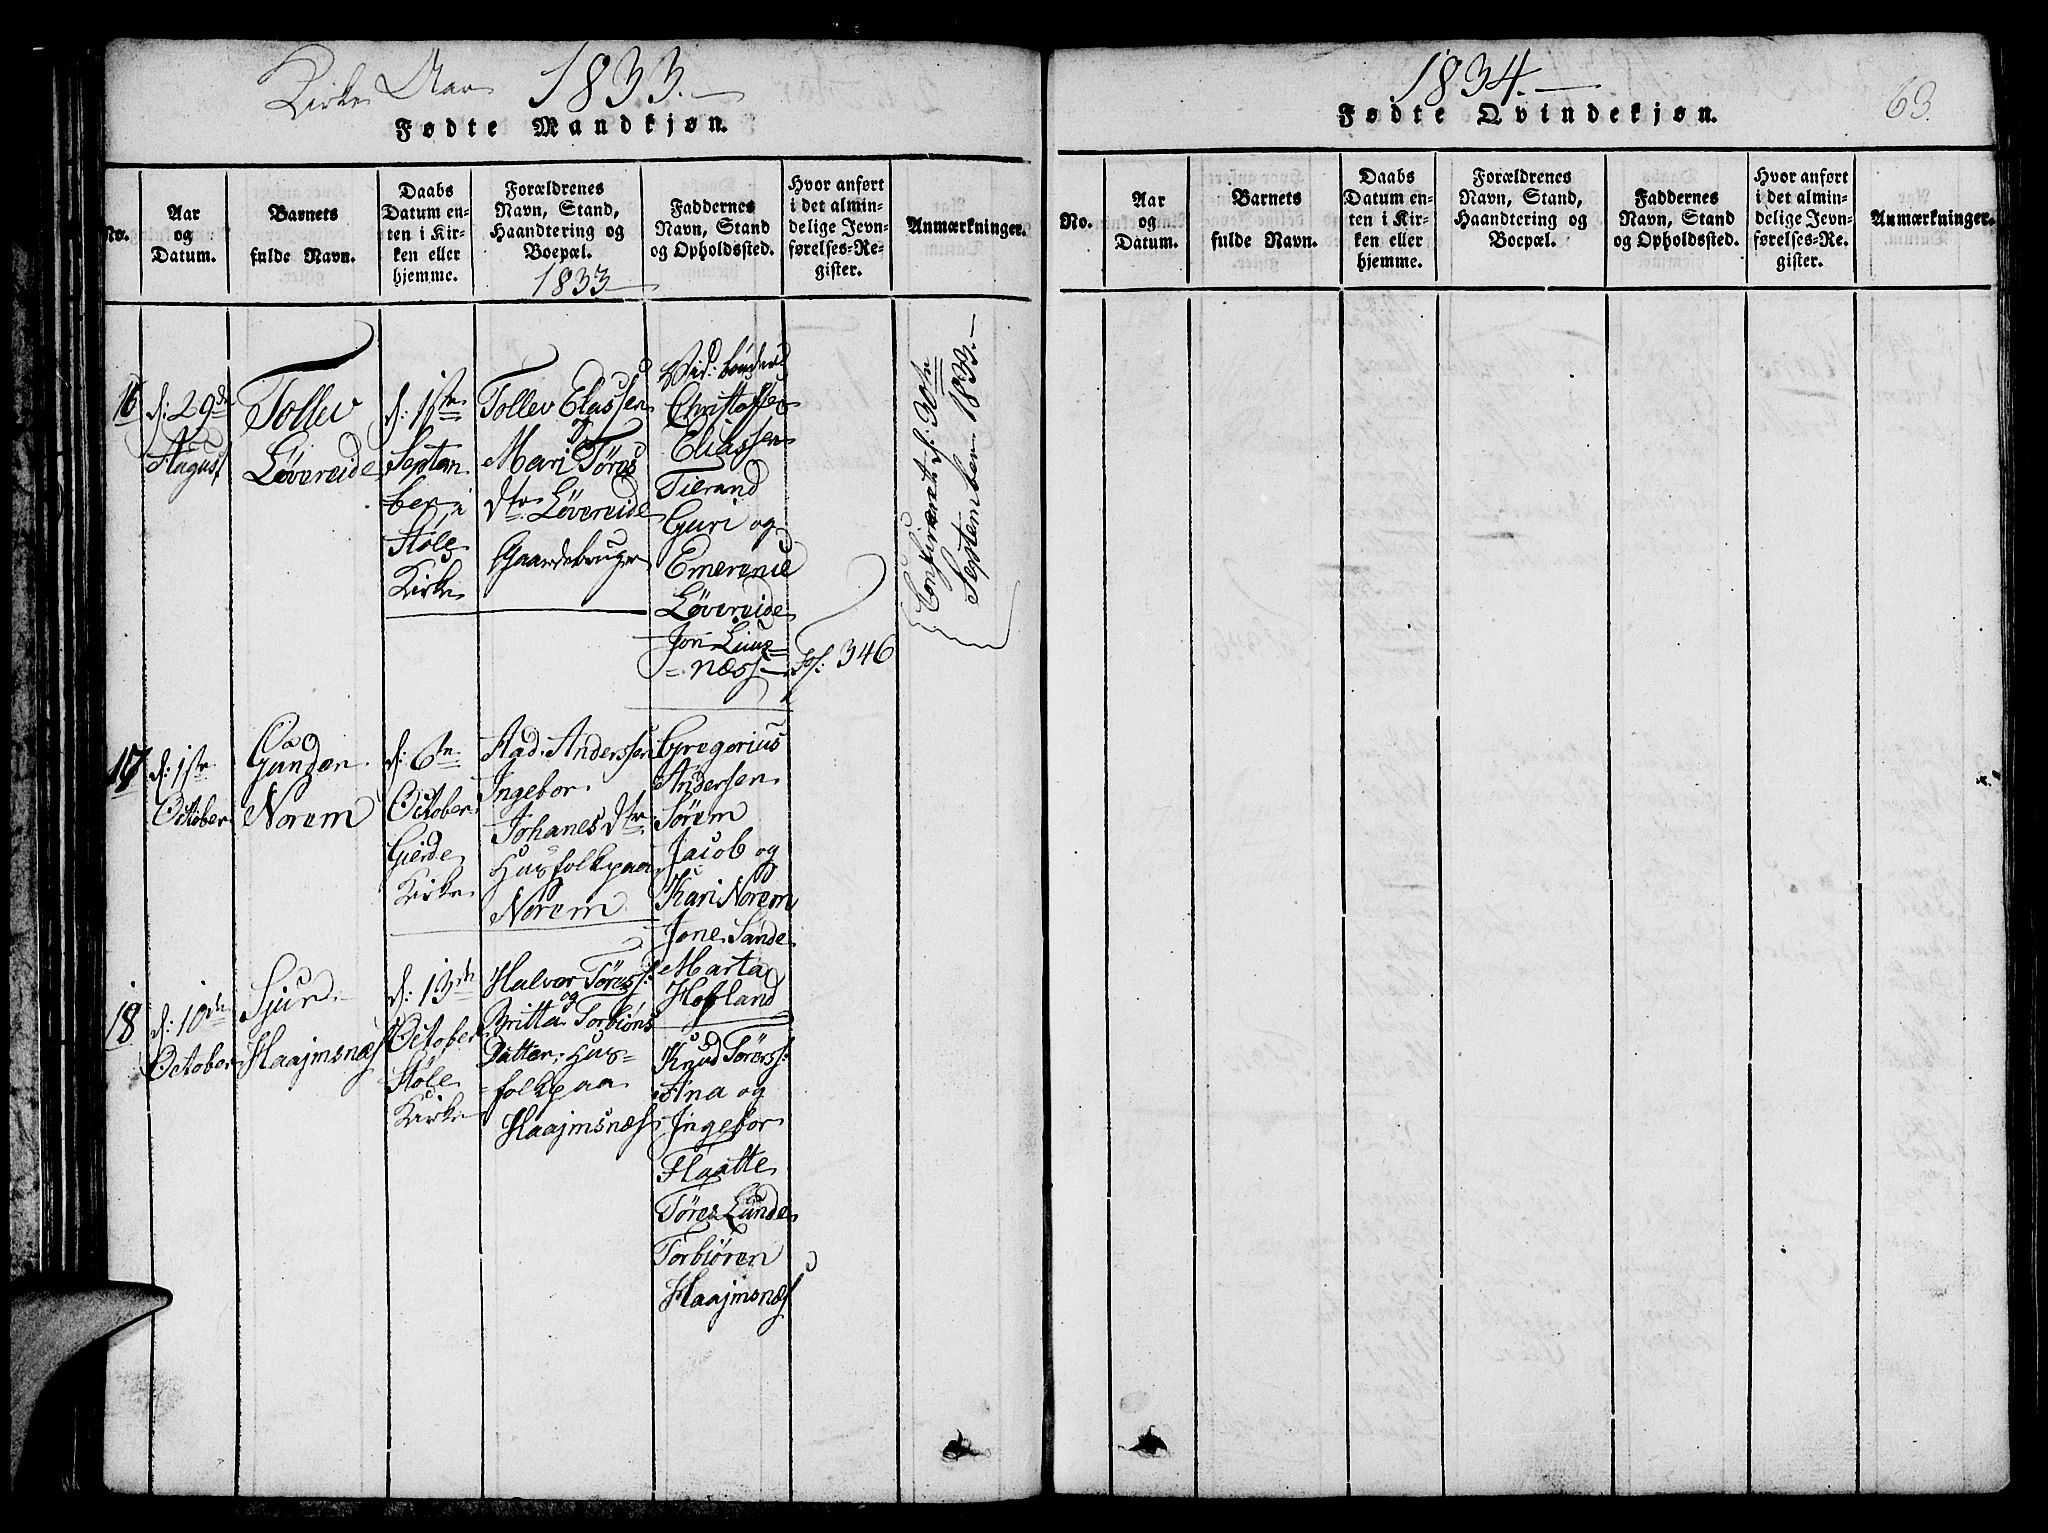 Kirke Aar 1833.
Fødte Mandkjøn.
No.
Aar
og
Datum.
Barnets
fulde Navn.
Daabs
Datum en-
ten i Kir-
ken eller
hjemme.
Forældrenes
Navn, Stand,
Haandtering og
Boepæl.
1833
Faddernes
Navn, Stand
og Opholdssted.
Hvor anført
i det almin-
delige Jevn-
førelses-Re-
gister.
Anmærkninger.
16
d: 29de
August
Tollev
Løvereide
d: 1ste
Septem
ber i
Støle
Kirke
Tollev Elassen
og
Mari Tøres
dtr. Løvereide
Gaardebruger
Christoffer
Eliassen
Tierand
Guri og
Emerenie
Løvereide
Jon Lius=
=næss
Fol: 346
Confirmeret d: 30te
September 1833.
17
d: 1ste
October
Gunder
Norem
d: 6te
October
Gierde
Kirke
Aad. Anderssen
Ingebor
Johanes dtr
Husfolk paa
Norem
Gregorius
Andersen
Sørem
Jacob og
Kari Norem
Jone Sande
Marta
Hofland
18
d: 10de
October
Sjur
Haajmsnæs
d: 13de
October
Støle
Kirke
Halvor Tøress:
og
Britta Torbiøns
Datter. Hus=
=folk paa
Haajmsnæs
Knud Tørerss:
Ana og
Ingebor
Flaatte
Tøres Lunde
Torbiøren
Haajmsnæs
1834.
63.
Fødte Qvindekjøn.
No.
Aar
og
Datum.
Barnets
fulde Navn.
Daabs
Datum en-
ten i Kir-
ken eller
hjemme.
Forældrenes
Navn, Stand,
Haandtering og
Boepæl.
Faddernes
Navn, Stand
og Opholdssted.
Hvor anført
i det almin-
delige Jevn-
førelses-Re-
gister.
Anmærkninger.